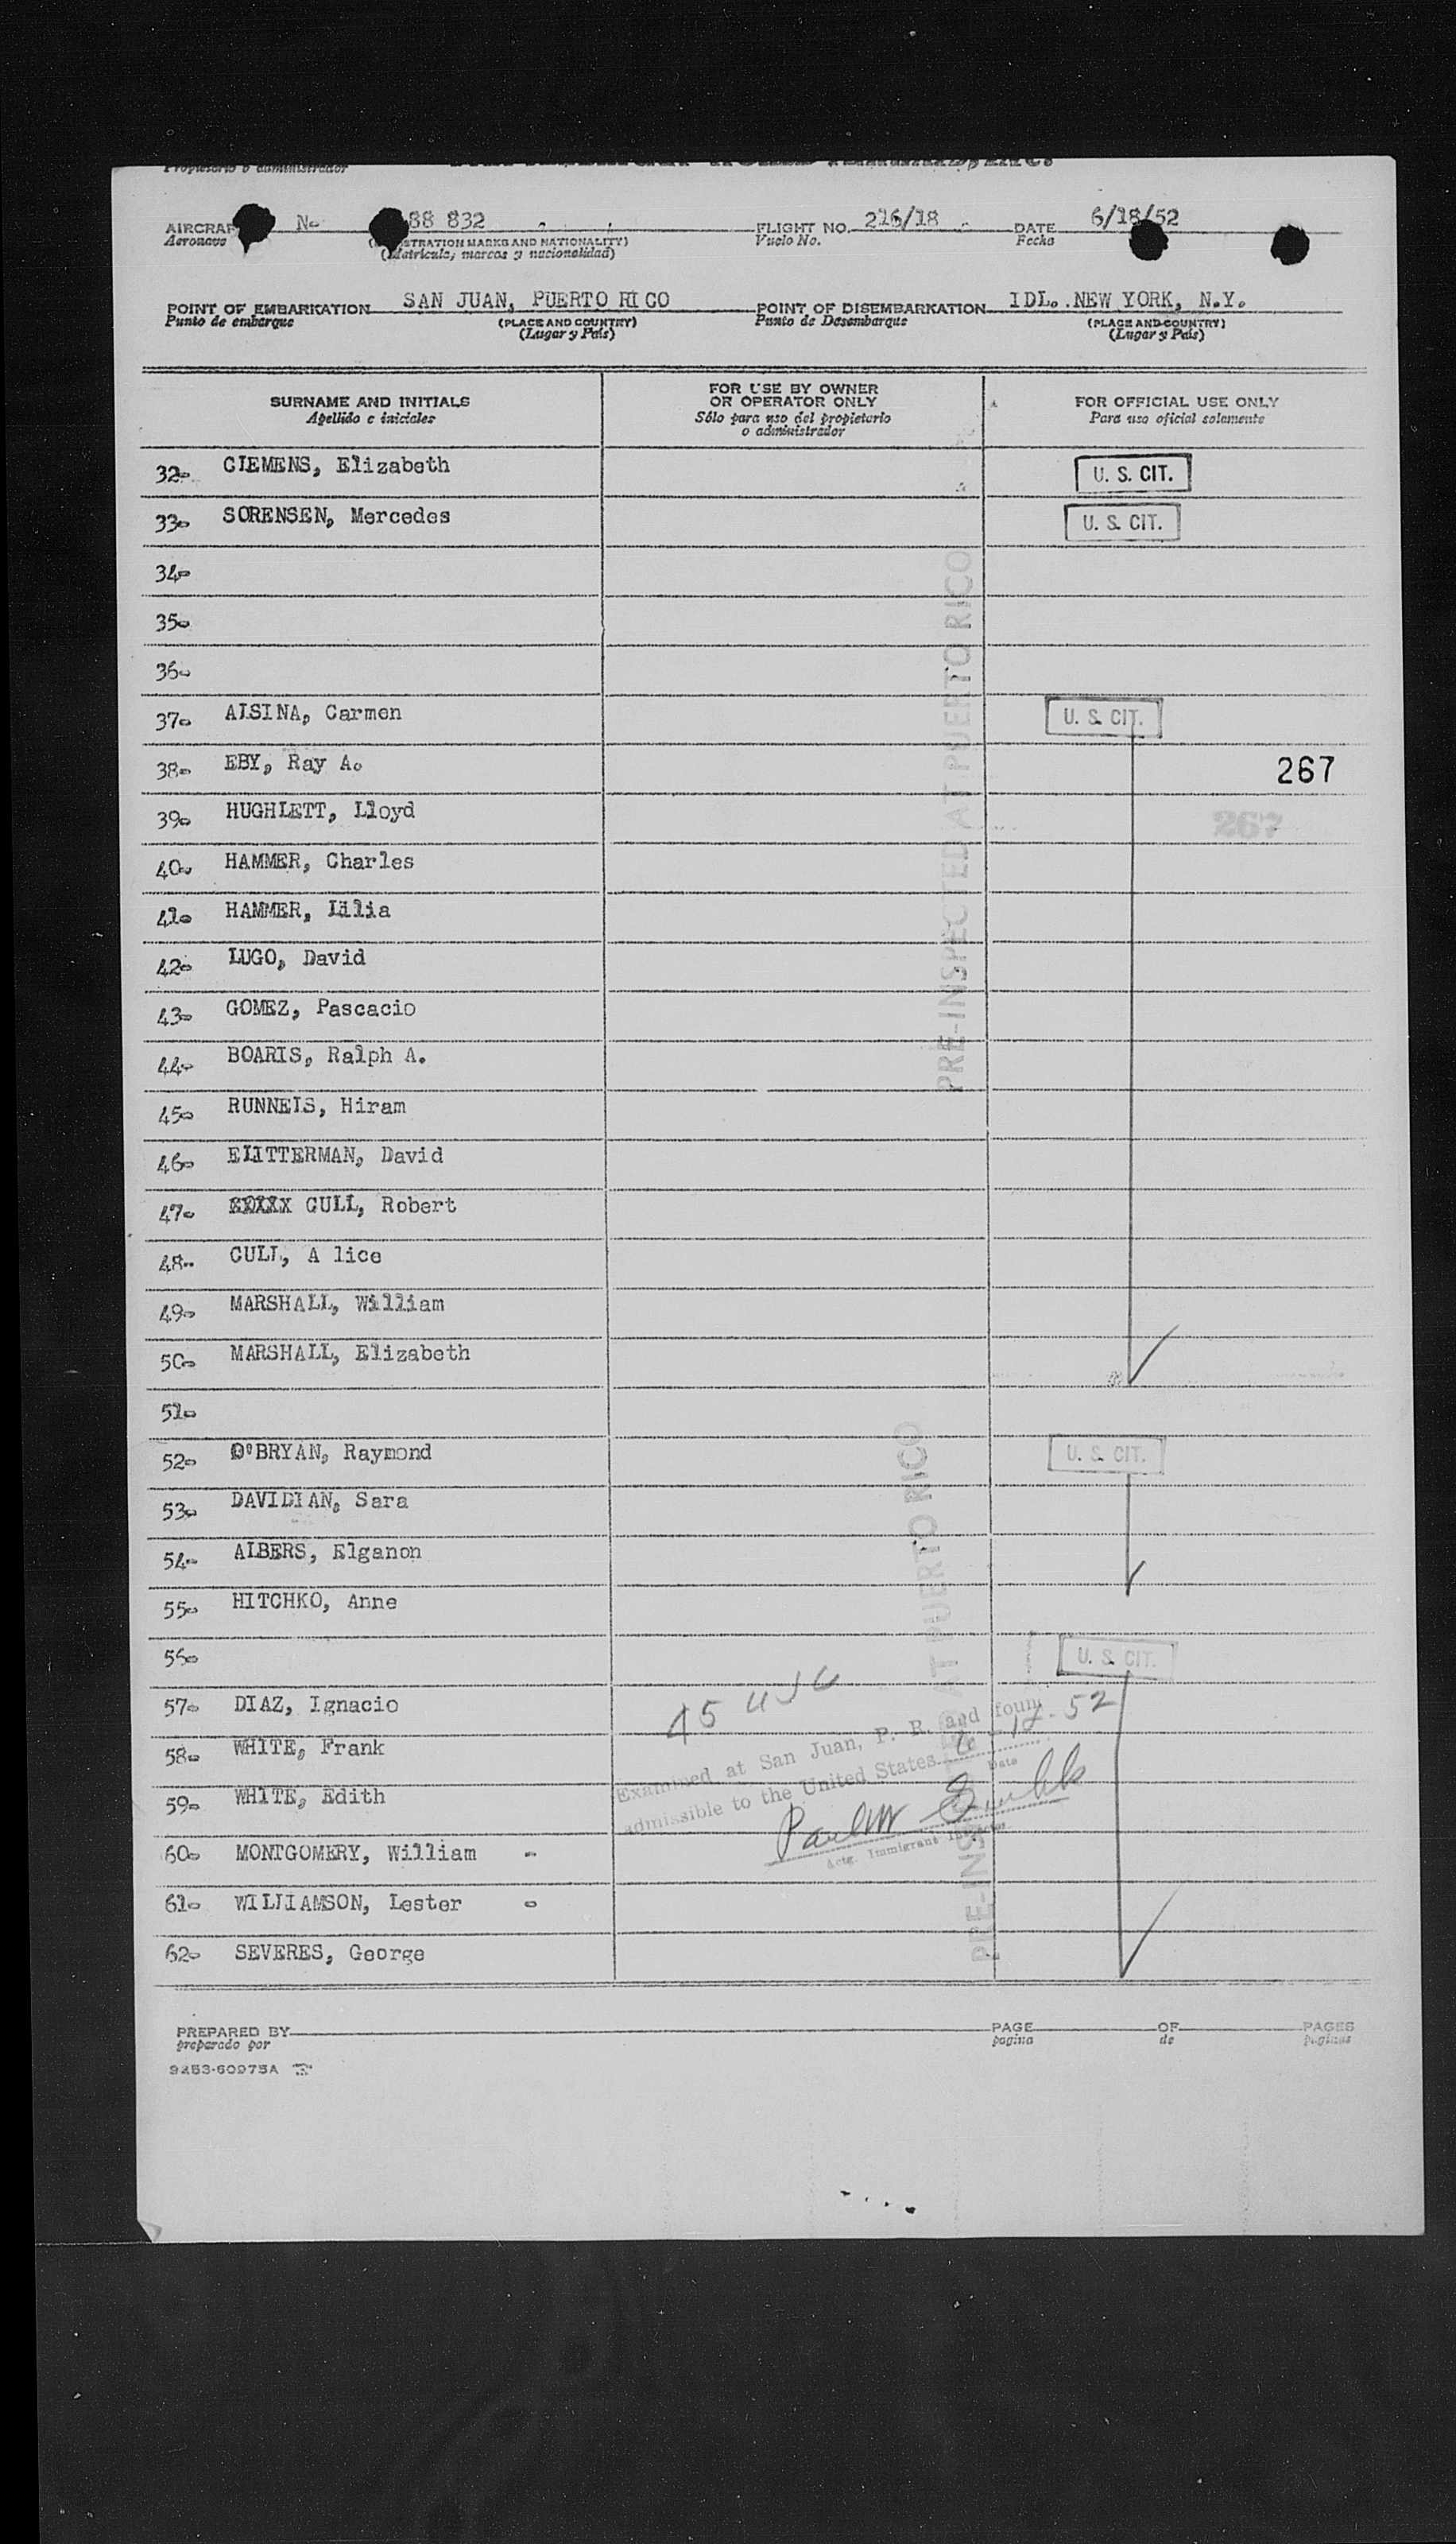 Propietario o administrador
AIRCRAF N- 88 832 FLIGHT NO. 216/18 DATE 6/18/52
Aeronave (STRATION MARKS AND NATIONALITY) Vuelo No. Fecha
(Matrícula, marcas y nacionalidad)
POINT OF EMBARKATION SAN JUAN, PUERTO RICO POINT OF DISEMBARKATION IDL. NEW YORK, N.Y.
Punto de embarque (PLACE AND COUNTRY) Punto de Desembarque (PLACE AND COUNTRY)
(Lugar y País) (Lugar y País)
SURNAME AND INITIALS FOR USE BY OWNER OR OPERATOR ONLY FOR OFFICIAL USE ONLY
Apellido e iniciales Sólo para uso del propietario o administrador Para uso oficial solamente
32- CLEMENS, Elizabeth U. S. CIT.
33- SORENSEN, Mercedes U. S. CIT.
34-
35-
36-
37- ALSINA, Carmen U. S. CIT.
38- EBY, Ray A. 267
39- HUGHLETT, Lloyd 267
40- HAMMER, Charles
41- HAMMER, Lilia
42- LUGO, David
43- GOMEZ, Pascacio
44- BOARIS, Ralph A.
45- RUNNELS, Hiram
46- ELITTERMAN, David
47- CULL, Robert
48- CULL, A lice
49- MARSHALL, William
50- MARSHALL, Elizabeth
51-
52- O'BRYAN, Raymond U. S. CIT.
53- DAVIDIAN, Sara
54- ALBERS, Elganon
55- HITCHKO, Anne
56- U. S. CIT.
57- DIAZ, Ignacio
58- WHITE, Frank
59- WHITE, Edith
60- MONTGOMERY, William -
61- WILLIAMSON, Lester -
62- SEVERES, George
PRE-INSPECTED AT PUERTO RICO
PRE-INSPECTED AT PUERTO RICO
45 USC
Examined at San Juan, P. R. and found
admissible to the United States 6-18-52
Date
Paul W
Actg. Immigrant Inspector
PREPARED BY PAGE OF PAGES
preparado por pagina de paginas
9253-60975A